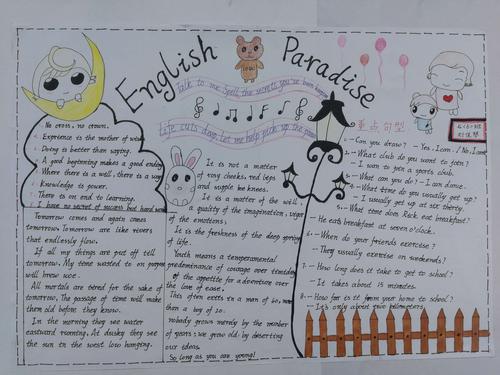 English Paradise
Talk to me Spell the secrets you've been keeping
Life cuts deep, Let me help pick up the pieces
No cross, no crown.
Experience is the mother of wisdom
Doing is better than saying.
A good beginning makes a good ending
Where there is a will, there is a way
Knowledge is power.
There is on end to learning.
I have no secret of success but hard work
Tomorrow comes and again comes
tomorrow Tomorrow are like rivers
that endlessly flow.
If all my things are put off till
tomorrow, My time wanted to on
will brew woe.
All mortals are tired for the sake of
tomorrow, The passage of time will make
them old before they know.
In the morning they see water
eastward running, At dusky they see
the sun in the west low hanging.
It is not a matter
of rosy cheeks, red lips
and supple knees.
It is a matter of the will,
a quality of the imagination, vigor
of the emotions;
It is the freshness of the deep spring
of life.
Youth means a temperamental
predominance of courage over timidity
of the appetite for adventure over
the love of ease.
This often exists in a man of 60, more
than a boy of 20.
nobody grows merely by the number
of years; we grow old by deserting
our ideas.
So long as you are young!
重点句型
1.- Can you draw? - Yes, I can. / No, I can't
2.- What club do you want to join?
- I want to join a sports club.
3.- What can you do? - I can dance.
4.- What time do you usually get up?
- I usually get up at six thirty
5.- What time does Rick eat breakfast?
- He eats breakfast at seven o'clock.
6.- When do your friends exercise?
- They usually exercise on weekends!
7.- How long does it take to get to school?
- It takes about 15 minutes.
8.- How far is it from your home to school?
- It's only about two kilometers.